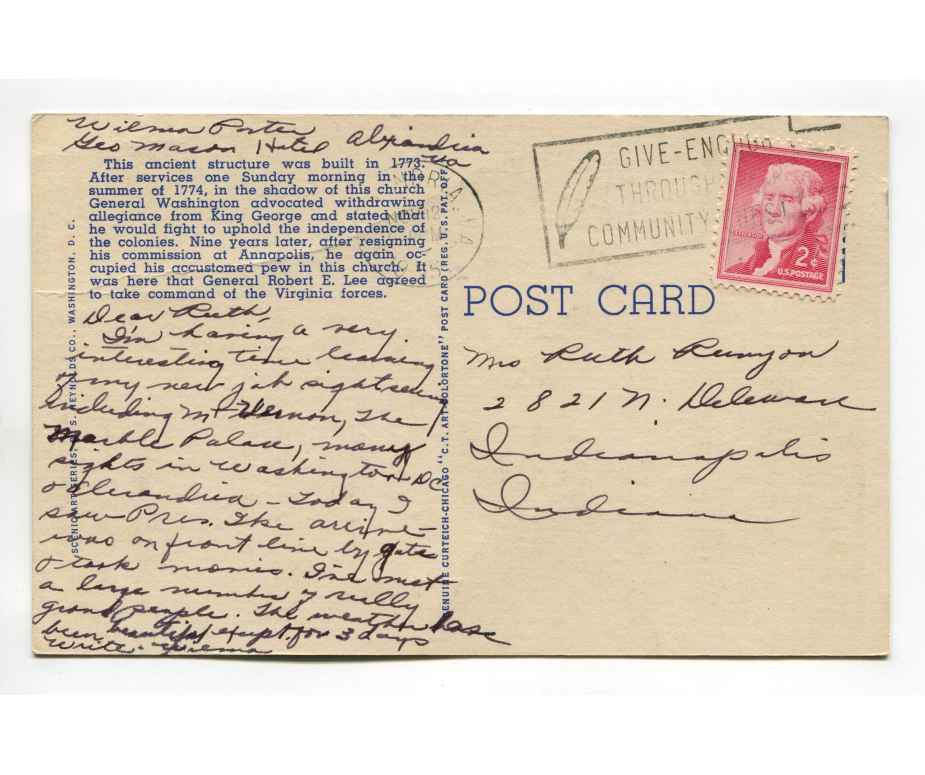 Wilma Porter
Geo Mason Hotel Alexandria
Va
This ancient structure was built in 1773.
After services one Sunday morning in the
summer of 1774, in the shadow of this church
General Washington advocated withdrawing
allegiance from King George and stated that
he would fight to uphold the independence of
the colonies. Nine years later, after resigning
his commission at Annapolis, he again oc-
cupied his accustomed pew in this church. It
was here that General Robert E. Lee agreed
to take command of the Virginia forces.
Dear Ruth,
I'm having a very
interesting time learning
of my new job sightseeing
including Mt Vernon, The
Marble Palace, many
sights in Washington DC
& Alexandria - Today I
saw Pres. Ike arrive -
was on front line by gate
& took movies. I've met
a large number of really
grand people. The weather has
been beautiful except for 3 days
Write - Wilma
"SCENIC ART SERIES," S. REYNOLDS CO., WASHINGTON, D. C.
GENUINE CURTEICH-CHICAGO "C.T. ART-COLORTONE" POST CARD (REG. U.S. PAT. OFF.
GIVE-ENOUGH
THROUGH
COMMUNITY
2¢
U.S. POSTAGE
POST CARD
Mrs Ruth Runyon
2821 N. Deleware
Indianapolis
Indiana